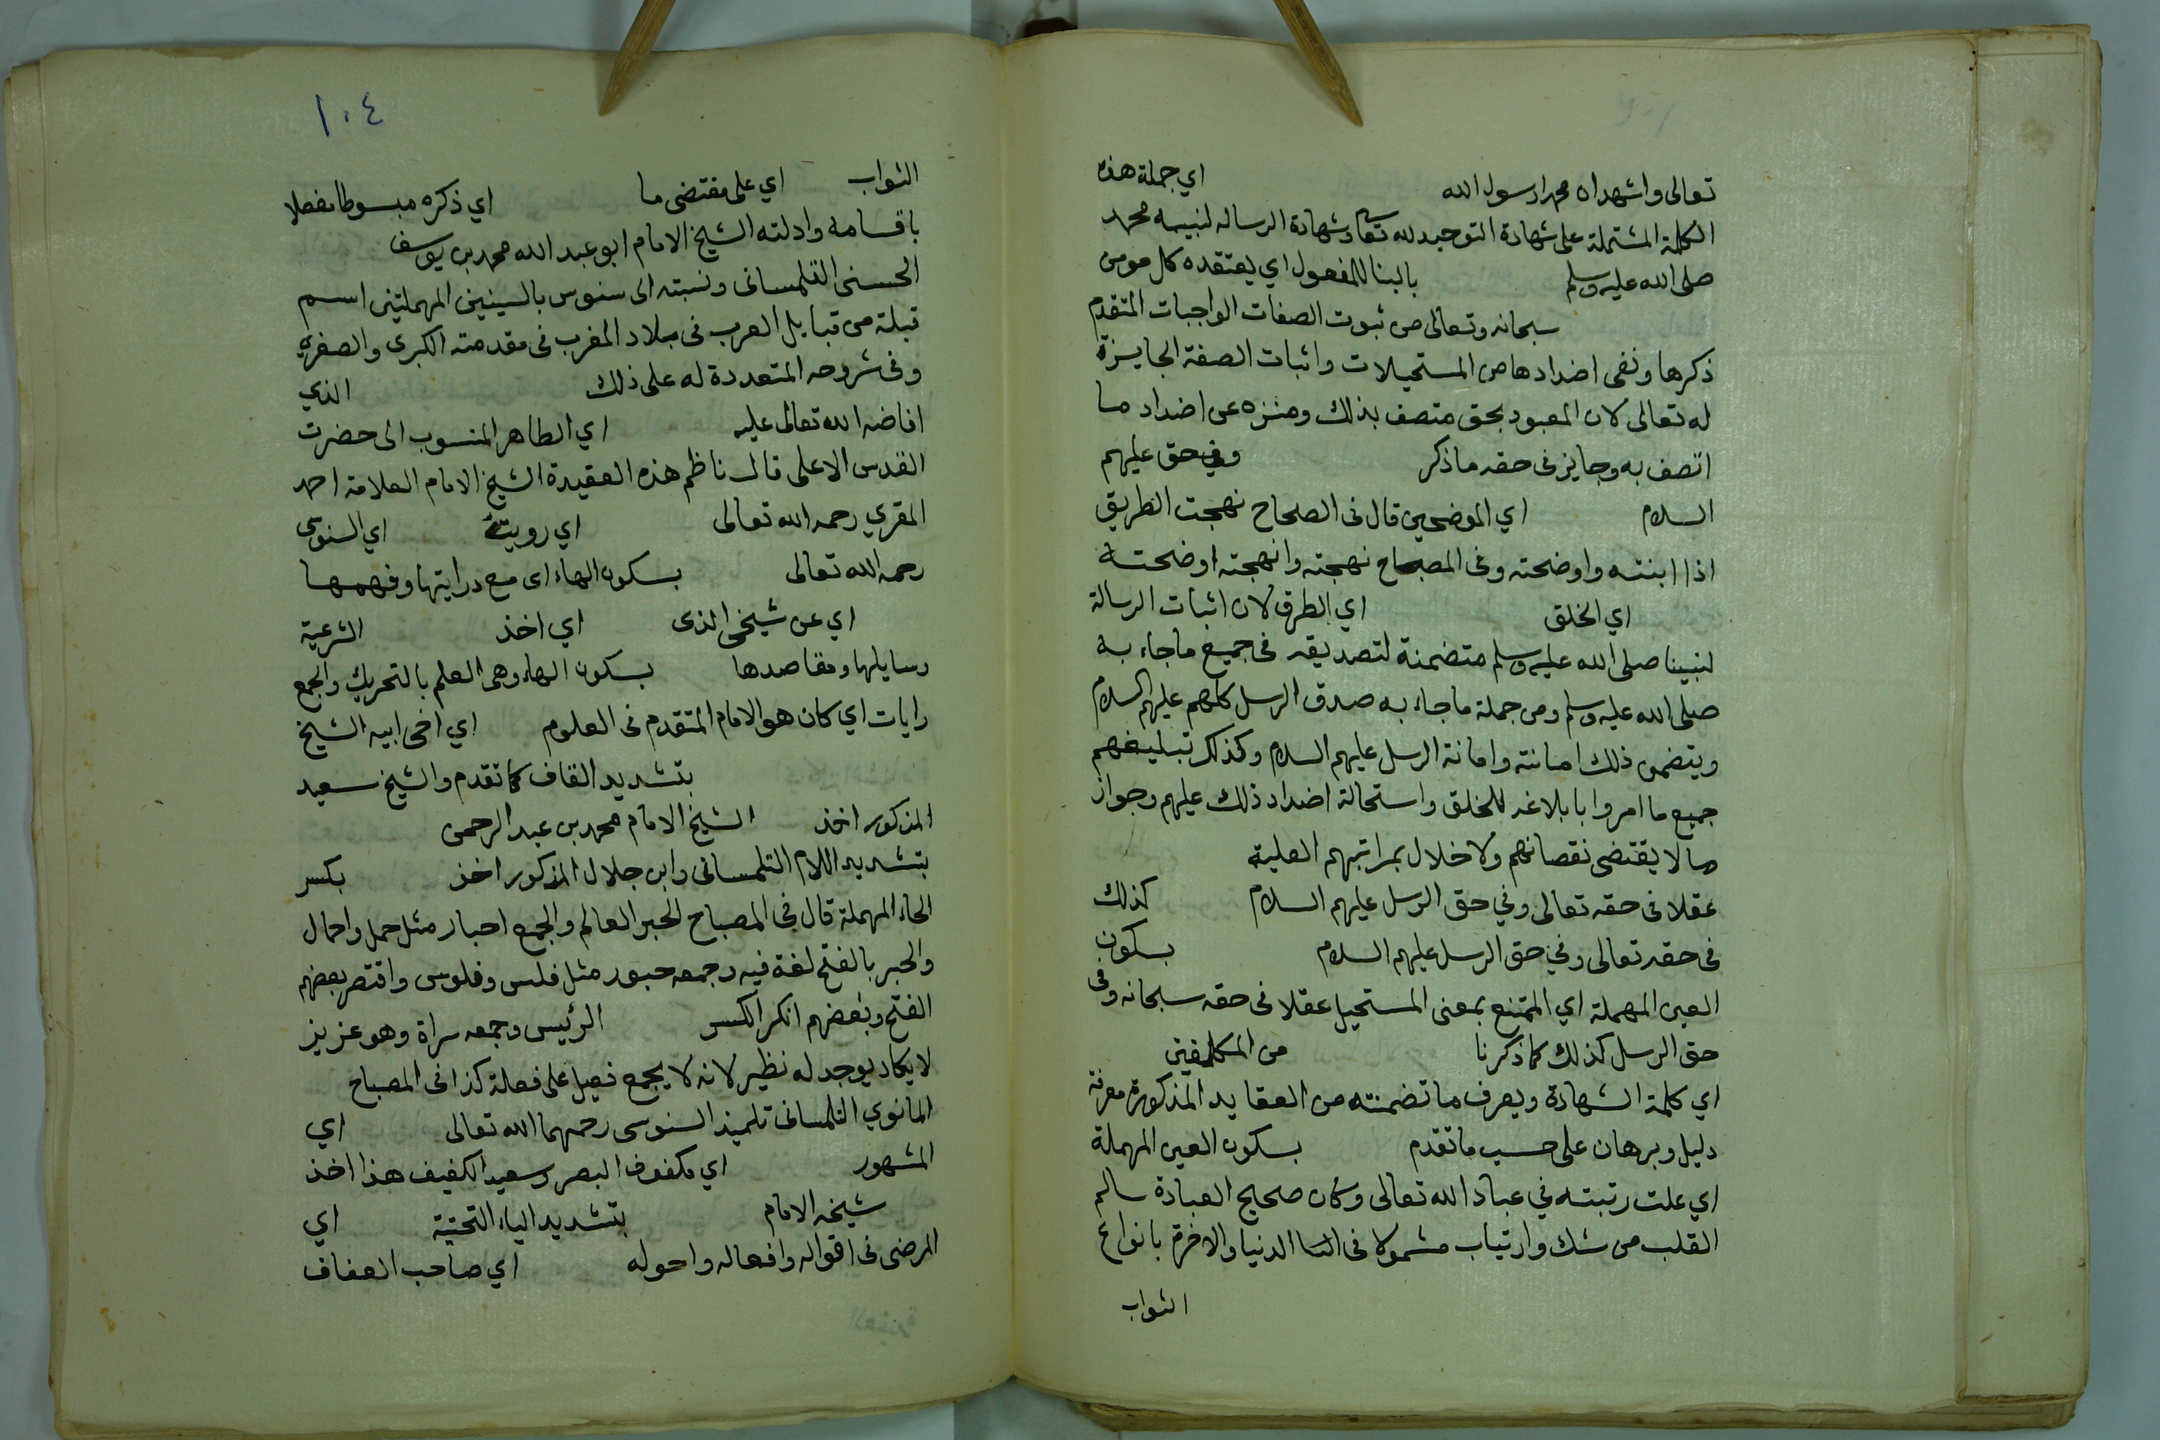 تعالى واشهد ان محمدا رسول الله اي جملة هذه
الكلمة المشتملة على شهادة التوحيد لله تعالى وشهادة الرسالة لنبيه محمد
صلى الله عليه وسلم بالبنا للمفعول اي يعتقده كل مومن
سبحانه وتعالى من ثبوت الصفات الواجبات المتقدم
ذكرها ونفى اضدادها من المستحيلات واثبات الصفة الجايزة
له تعالى لان المعبود بحق متصف بذلك ومنزه عن اضداد ما
اتصف به وجايز فى حقه ما ذكر وفي حق عليهم
السلام اي الموضحين قال فى الصحاح نهجت الطريق
اذا ابنته واوضحته وفى المصباح نهجته وانهجته اوضحته
اي الخلق اي الطرق لان اثبات الرسالة
لنبينا صلى الله عليه وسلم متضمنة لتصديقه فى جميع ما جاء به
صلى الله عليه وسلم ومن جملة ما جاء به صدق الرسل كلهم عليهم السلام
ويتضمن ذلك امانته وامانة الرسل عليهم السلام وكذلك تبليغهم
جميع ما امروا بابلاغه للخلق واستحالة اضداد ذلك عليهم وجواز
ما لا يقتضى نقصانهم ولا خلال بمراتبهم العلية
عقلا فى حقه تعالى وفي حق الرسل عليهم السلام كذلك
فى حقه تعالى وفي حق الرسل عليهم السلام بسكون
العين المهملة اي الممتنع بمعنى المستحيل عقلا فى حقه سبحانه وفى
حق الرسل كذلك كما ذكرنا من المكلفين
اي كلمة الشهادة ويعرف ما تضمنته من العقايد المذكورة معرفة
دليل وبرهان على حسب ما تقدم بسكون العين المهملة
اي علت رتبته في عباد الله تعالى وكان صحيح العبادة سالم
القلب من شك وارتياب مشمولا فى الدنيا والاخرة بانواع
الثواب
١٠٤
الثواب اي على مقتضى ما اي ذكره مبسوطا مفصلا
باقسامه وادلته الشيخ الامام ابو عبد الله محمد بن يوسف
الحسنى التلمسانى ونسبته الى سنوس بالسينين المهملتين اسم
قبلة من قبايل العرب فى بلاد المغرب فى مقدمته الكبرى والصغرى
وفى شروحه المتعددة له على ذلك الذي
افاضه الله تعالى عليه اي الطاهر المنسوب الى حضرت
القدس الاعلى قال ناظم هذه العقيدة الشيخ الامام العلامة احمد
المقري رحمه الله تعالى اي رويته اي السنوسى
رحمه الله تعالى بسكون الهاء اى مع درايتها وفهمها
اي عن شيخى الذى اي اخذ الشرعية
رسايلها ومقاصدها بسكون الهاء وهى العلم بالتحريك والجمع
رايات اي كان هو الامام المتقدم فى العلوم اي اخى ابيه الشيخ
بتشديد القاف كما تقدم والشيخ سعيد
المذكور اخذ الشيخ الامام محمد بن عبد الرحمن
بتشديد اللام التلمسانى وابن جلال المذكور اخذ بكسر
الحاء المهملة قال فى المصباح الحبر العالم والجمع احبار مثل حمل واحمال
والحبر بالفتح لغة فيه وجمعه حبور مثل فلس وفلوس واقتصر بعضهم
الفتح وبعضهم انكر الكسر الرئيس وجمعه سراة وهو عزيز
لا يكاد يوجد له نظير لانه لا يجمع فعيل على فعلة كذا فى المصباح
المانوي التلمسانى تلميذ السنوسى رحمهما الله تعالى اي
المشهور اي مكفوف البصر وسعيد الكفيف هذا اخذ
شيخه الامام بتشديد الياء التحتية اي
المرضى فى اقواله وافعاله واحوله اي صاحب العفاف